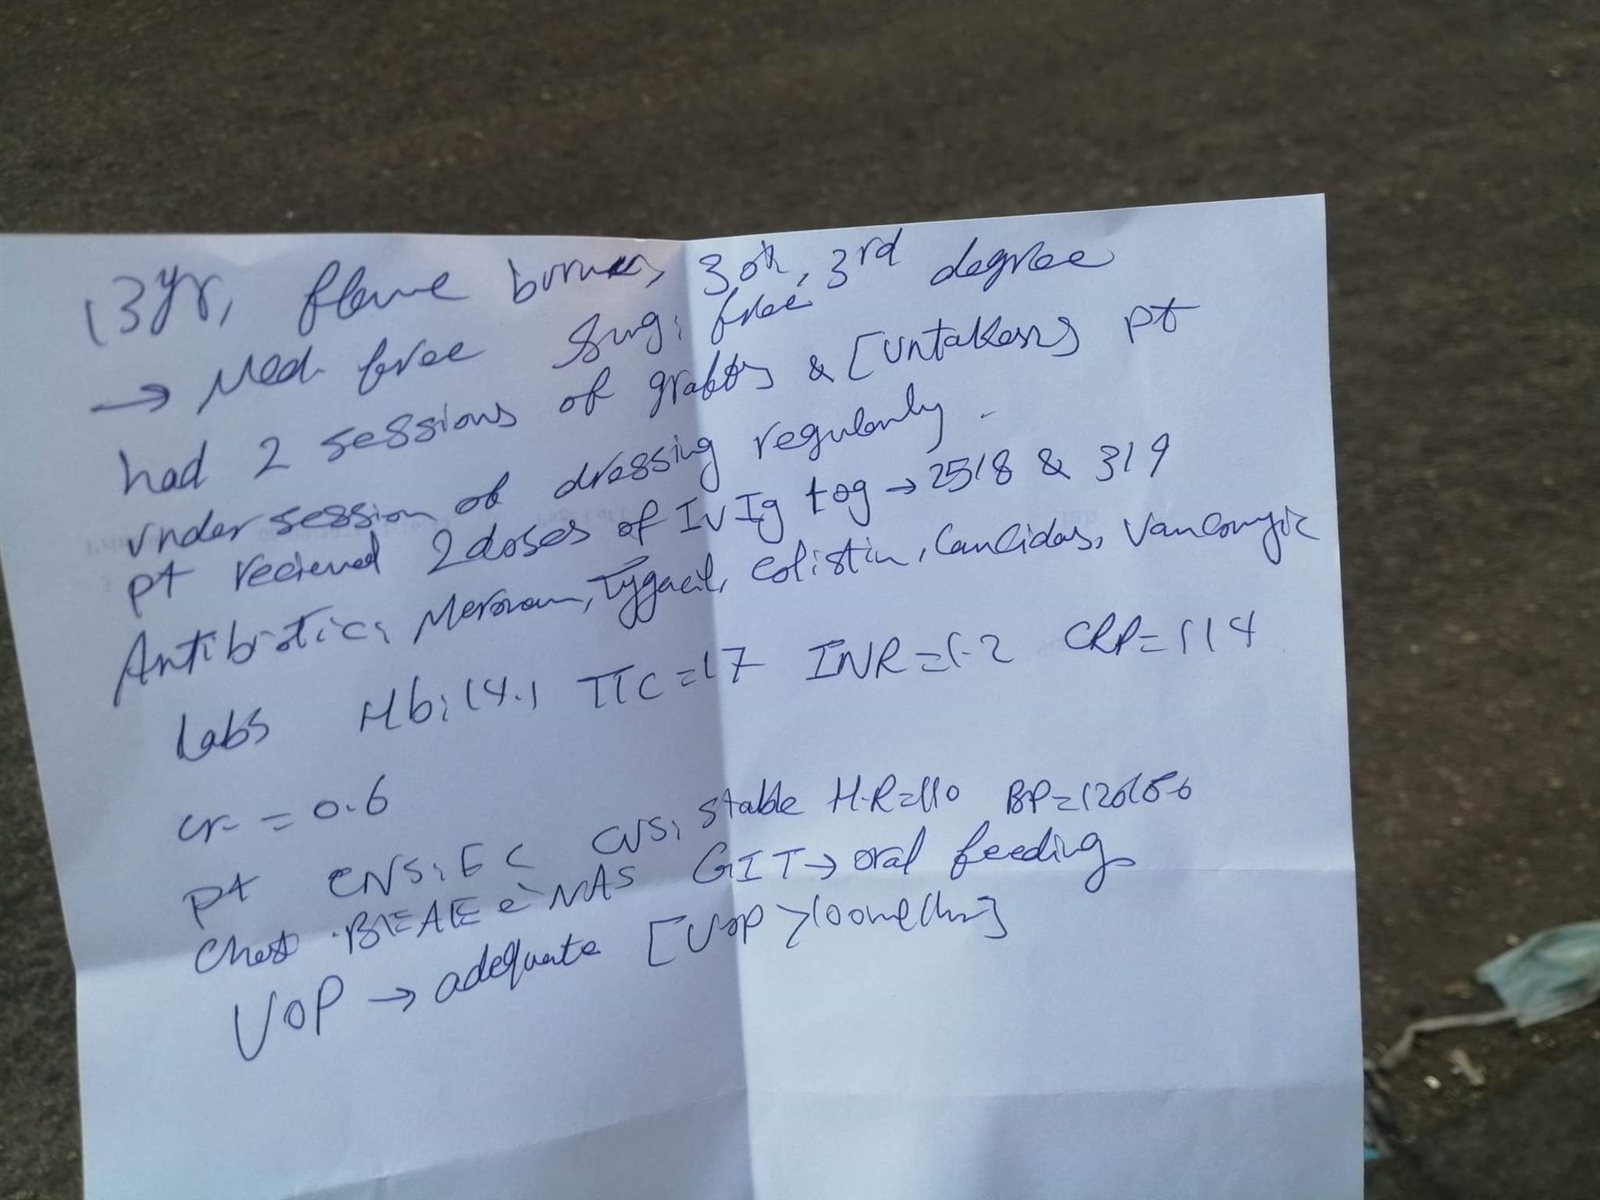 13 yr, flame burnes, 30%, 3rd degree
→ Med. free Surg: free
had 2 sessions of grafts & [untaken] pt
under session of dressing regularly.
pt recieved 2 doses of IVIg 10g → 25/8 & 3/9
Antibiotics: Meronam, Tygacil, Colistin, Cancidas, Vancomycin
Labs Hb: 14.1 TLC = 17 INR = 1.2 CRP = 114
cr = 0.6
pt CNS: FC CVS: stable H.R = 110 BP = 120/50
Chest BLEAE è NAS GIT → oral feeding
UOP → adequate [UOP > 100 ml/hr]